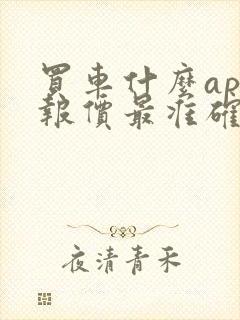 買車什麼ap
報價最准確
夜清青禾